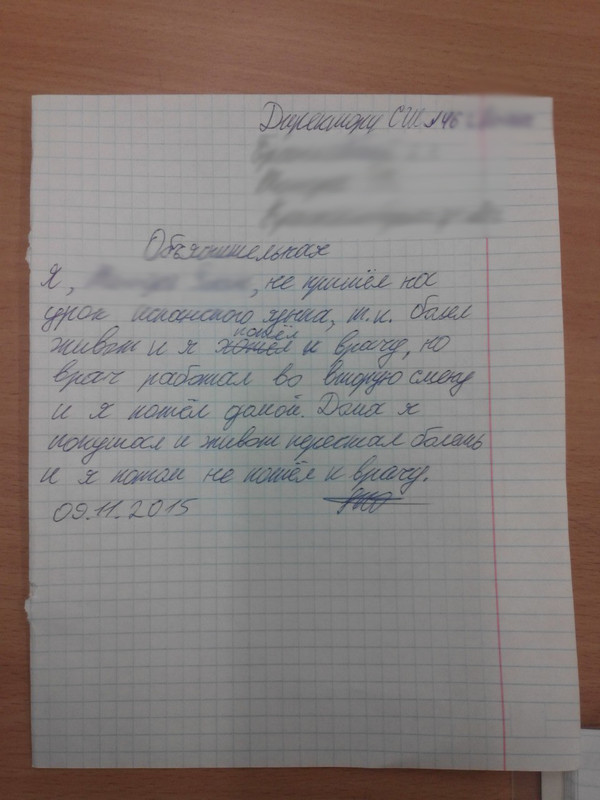 Директору СШ №46
Объяснительная
Я, не пришёл на
урок испанского языка, т.к. болел
живот и я хотел пошёл к врачу, но
врач работал во вторую смену
и я пошёл домой. Дома я
покушал и живот перестал болеть
и я потом не пошёл к врачу.
09.11.2015